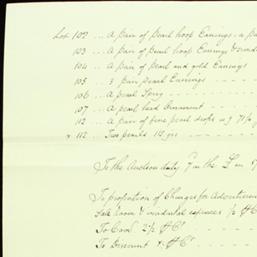 Lot 102 ... A pair of pearl hoop Earrings - a pair
103 ... A pair of pearl hoop Earrings &
104 ... A pair of pearl and gold Earrings
105 ... 3 pair pearl Earrings
106 ... A pearl Spray
107 ... A pearl leaf Ornament
112 ... A pair of fine pearl drops wg 71½
" 112 ... Two pearls 112 grs
To the Auction duty 7 in the £ on
To proportion of Charges for Advertisement
Sale Room & incidental expences ½ ⅌ Ct
To Com 2½ ⅌ Ct
To Discount ⅌ Ct